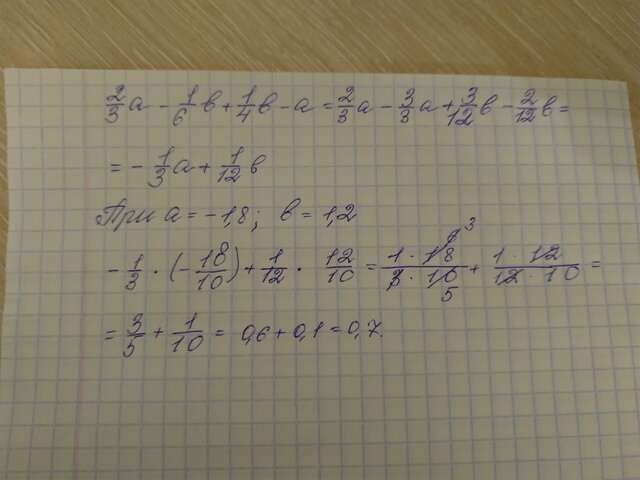 2/3 а - 1/6 в + 1/4 в - а = 2/3 а - 3/3 а + 3/12 в - 2/12 в =
= - 1/3 а + 1/12 в
При а = -1,8; в = 1,2
- 1/3 · (- 18/10) + 1/12 · 12/10 = 1 · 18 6 3 / 3 · 10 5 + 1 · 12 / 12 · 10 =
= 3/5 + 1/10 = 0,6 + 0,1 = 0,7.